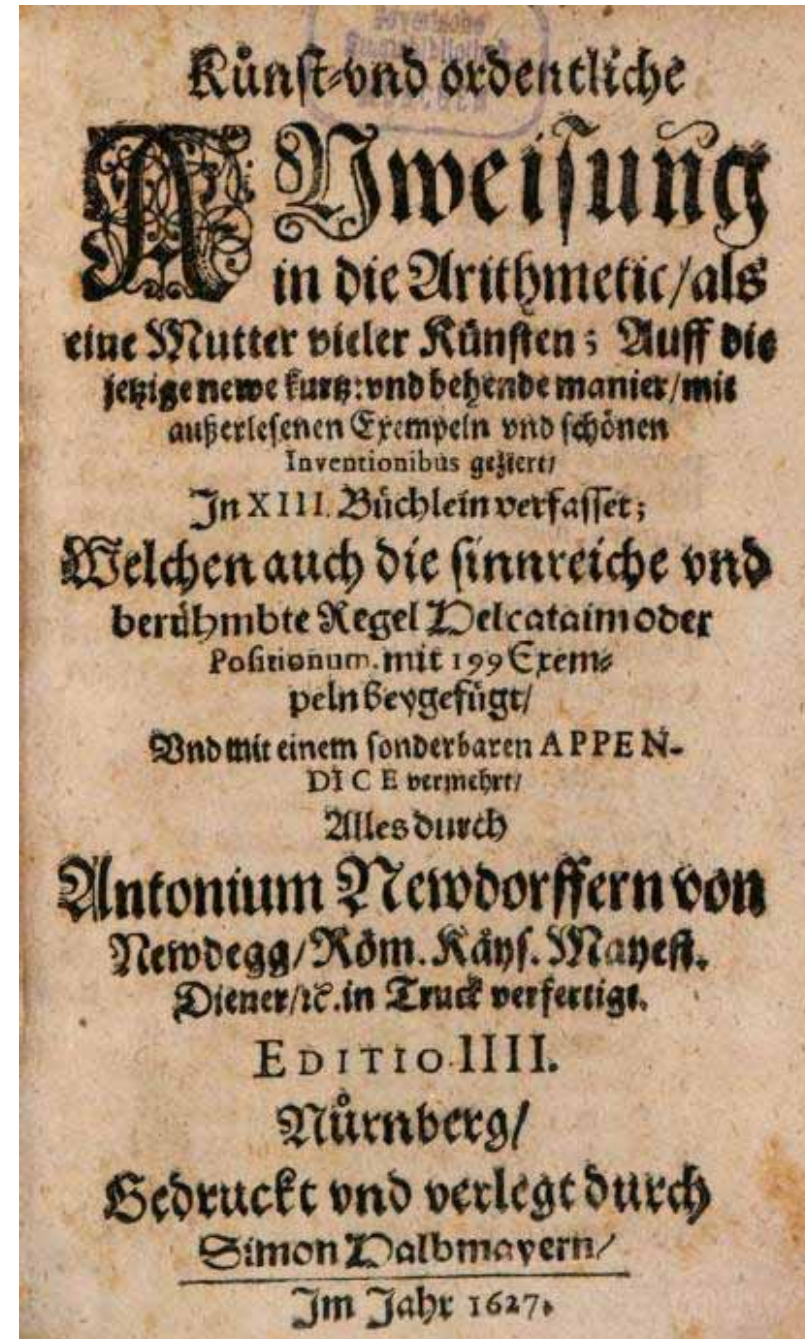 Künst-vnd ordentliche
ANweisung
in die Arithmetic/als
eine Mutter vieler Künsten; Auff die
jetzige newe kurtz: vnd behende manier/mit
außerlesenen Exempeln vnd schönen
Inventionibus geziert/
In XIII. Büchlein verfasset;
Welchen auch die sinnreiche vnd
berühmbte Regel Helcataim oder
Positionum. mit 199 Exem-
peln beygefügt/
Vnd mit einem sonderbaren APPEN-
DICE vermehrt/
Alles durch
Antonium Newdorffern von
Newdegg/Röm. Käys. Mayest.
Diener/ꝛc. in Truck verfertigt.
EDITIO IIII.
Nürnberg/
Gedruckt vnd verlegt durch
Simon Halbmayern/
Im Jahr 1627.